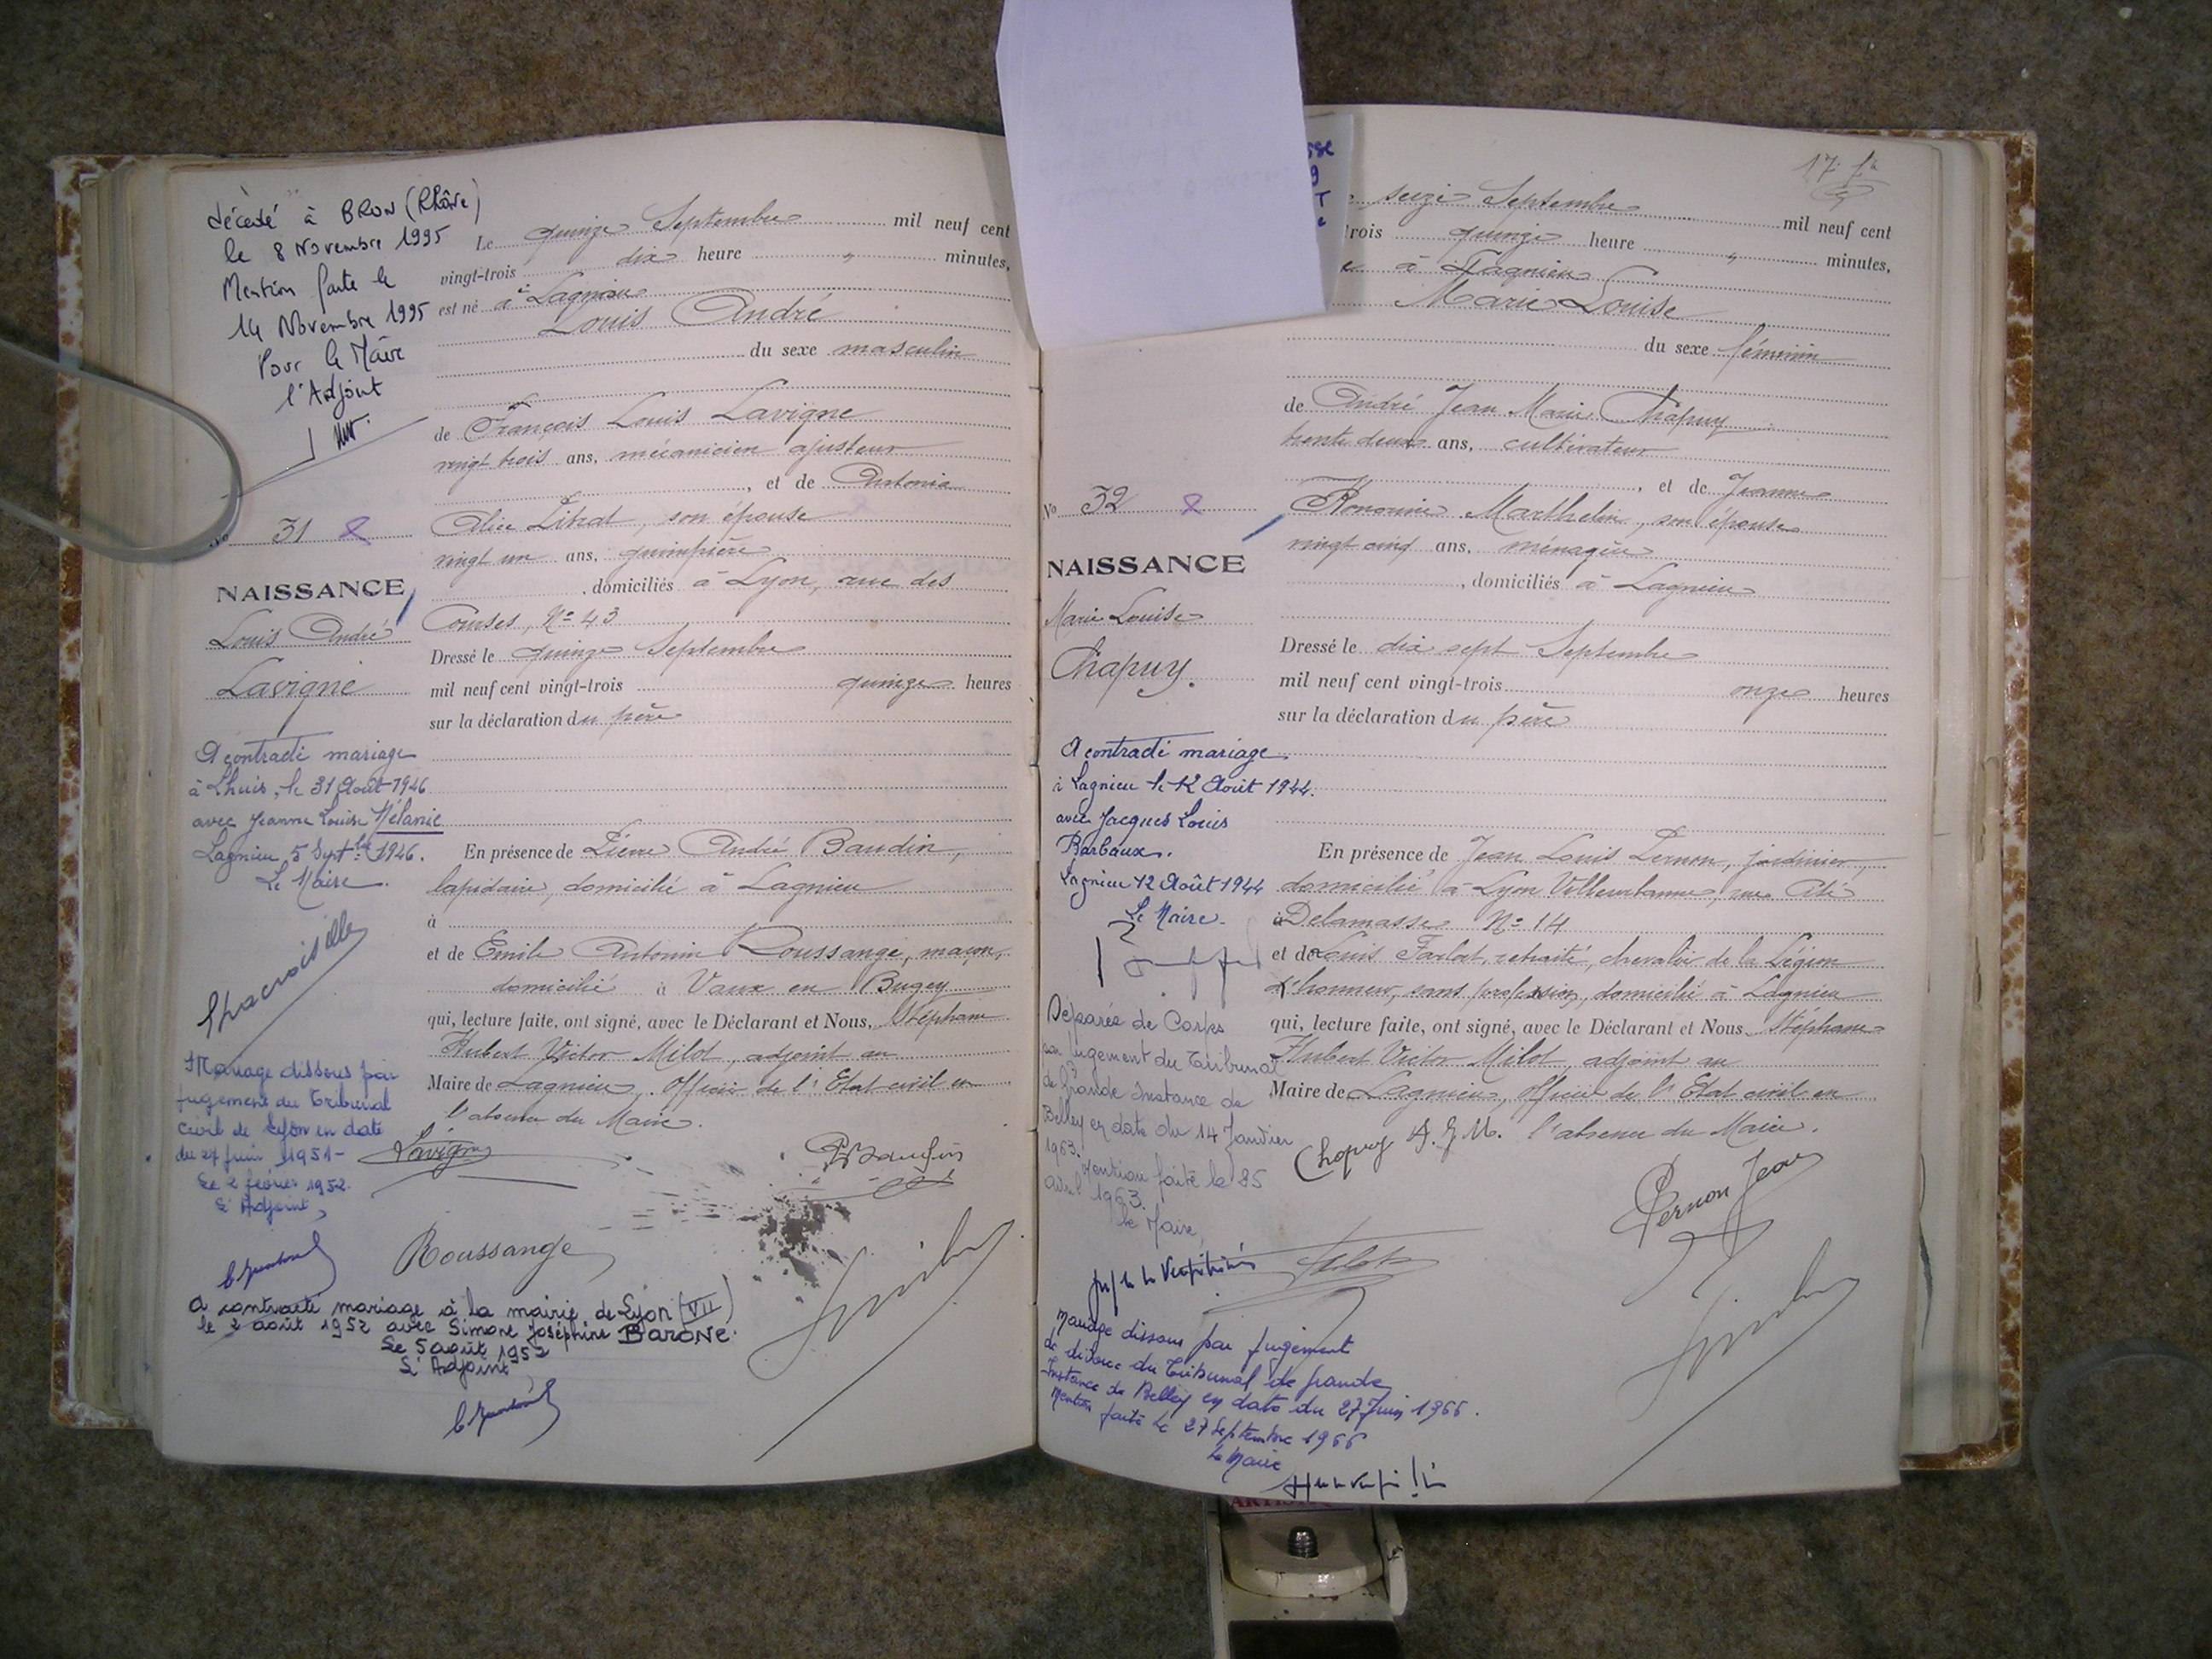 décédé à BRON (Rhône)
le 8 Novembre 1995
Mention faite le
14 Novembre 1995
Pour le Maire
l'Adjoint
No 31
NAISSANCE
Louis André
Lavigne
A contracté mariage
à Lhuis, le 31 Août 1946
avec Jeanne Louise Mélanie
Lagnieu 5 Sept.bre 1946.
Le Maire.
Mariage dissous par
jugement du Tribunal
civil de Lyon en date
du 27 juin 1951-
Le 2 février 1952.
L'Adjoint,
Le quinze Septembre mil neuf cent
vingt-trois dix heure " minutes,
est né à Lagnieu
Louis André
du sexe masculin
de François Louis Lavigne
vingt trois ans, mécanicien ajusteur
, et de Antonia
Alice Litrat, son épouse
vingt un ans, guimpière
, domiciliés à Lyon, rue des
Courses, N° 43
Dressé le quinze Septembre
mil neuf cent vingt-trois quinze heures
sur la déclaration du père
En présence de Pierre André Baudin,
lapidaire, domicilié à Lagnieu
à
et de Emile Antonin Roussange, maçon,
domicilié à Vaux en Bugey
qui, lecture faite, ont signé, avec le Déclarant et Nous, Stéphane
Hubert Victor Milot, adjoint au
Maire de Lagnieu, Officier de l'Etat civil en
l'absence du Maire.
Lavigne
Roussange
A contracté mariage à la mairie de Lyon (VII)
le 2 août 1952 avec Simone Joséphine BARONE.
Le 5 août 1952
L'Adjoint
17
seize Septembre mil neuf cent
trois quinze heure " minutes,
à Lagnieu
Marie Louise
du sexe féminin
de André Jean Marie Chapuy
trente deux ans, cultivateur
, et de Jeanne
Honorine Marthelin, son épouse
vingt cinq ans, ménagère
, domiciliés à Lagnieu
Dressé le dix sept Septembre
mil neuf cent vingt-trois onze heures
sur la déclaration du père
En présence de Jean Louis Pernon, jardinier,
domicilié à Lyon Villeurbanne, rue
à Delamasse N° 14
et de Louis Farlat, retraité, chevalier de la Légion
d'honneur, sans profession, domicilié à Lagnieu
qui, lecture faite, ont signé, avec le Déclarant et Nous, Stéphane
Hubert Victor Milot, adjoint au
Maire de Lagnieu, Officier de l'Etat civil en
l'absence du Maire.
Chapuy A. J. M.
Pernon Jean
No 32
NAISSANCE
Marie Louise
Chapuy.
A contracté mariage
à Lagnieu le 12 Août 1944.
avec Jacques Louis
Barbaux.
Lagnieu 12 Août 1944
Le Maire.
Séparée de Corps
par jugement du Tribunal
de Grande Instance de
Belley en date du 14 Janvier
1963. Mention faite le 25
avril 1963.
le Maire,
Mariage dissous par jugement
de divorce du Tribunal de Grande
Instance de Belley en date du 27 Juin 1966.
Mention faite le 27 Septembre 1966
Le Maire